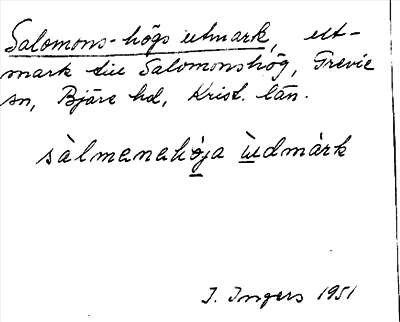 Salomons-högs utmark, ut-
mark till Salomonshög, Grevie
sn, Bjäre hd, Krist. län.
sàlmanahö̱ja ùdmárk
I. Ingers 1951